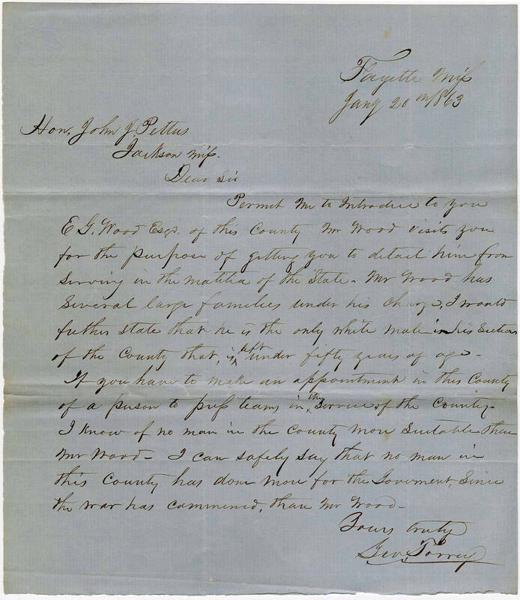 Fayette Miss
Jany 20th 1863
Hon. John J. Pettus
Jackson Miss.
Dear Sir
Permit Me to Introduce to you
E G. Wood Esqr. of this County Mr Wood visits you
for the purpose of getting you to detail him from
Serving in the malitia of the State. Mr Wood has
Several large families under his Charge, I would
futher state that he is the only white male in his Section
of the County that, is left under fifty years of age.
If you have to make an appointment in this County
of a person to press teams in the Service of the Country.
I Know of no man in the County More Suitable than
Mr Wood. I can Safely Say that no man in
this County has done more for the Goverment, Since
the war has commenced, than Mr Wood.
Yours truly
Geo. Torrey